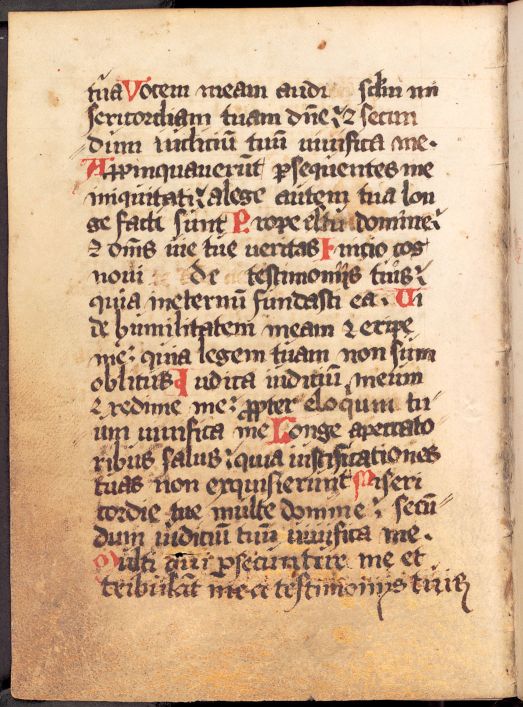 tua Vocem meam audi scdm mi
sericordiam tuam dne: ⁊ secun
dum iudiciū tuū uiuifica me.
Appinquauerūt psequentes me
iniquitati: a lege autem tua lon
ge facti sunt Prope es tu domine:
⁊ oms uie tue ueritas Inicio cog
noui de testimonijs tuis:
quia ineternū fundasti ea. Ui
de humilitatem meam ⁊ eripe
me: quia legem tuam non sum
oblitus Iudica iudiciū meum
⁊ redime me: ppter eloquium tu
um uiuifica me Longe a peccato
ribus salus: quia iustificationes
tuas non exquisierunt Miseri
cordie tue multe domine: secū
dum iudiciū tuū uiuifica me.
Multi qui psecuntur me et
tribulāt me a testimonijs tuis